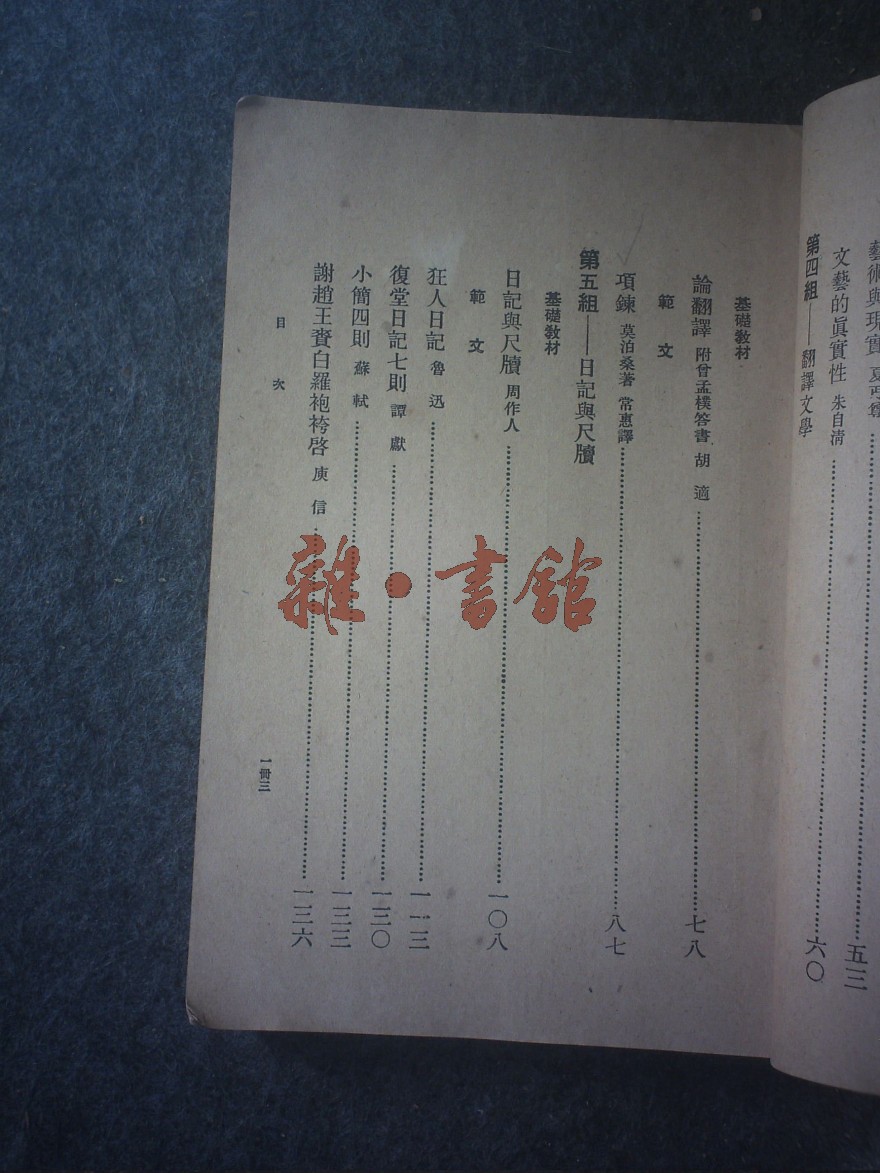 藝術與現實 夏丏尊
五三
文藝的眞實性 朱自淸
六〇
第四組——翻譯文學
基礎敎材
論翻譯 附曾孟樸答書 胡適
七八
範文
項鍊 莫泊桑著 常惠譯
八七
第五組——日記與尺牘
基礎敎材
日記與尺牘 周作人
一〇八
範文
狂人日記 魯迅
一一三
復堂日記七則 譚獻
一三〇
小簡四則 蘇軾
一三三
謝趙王賚白羅袍袴啓 庾信
一三六
目次
一冊三
雜·書館